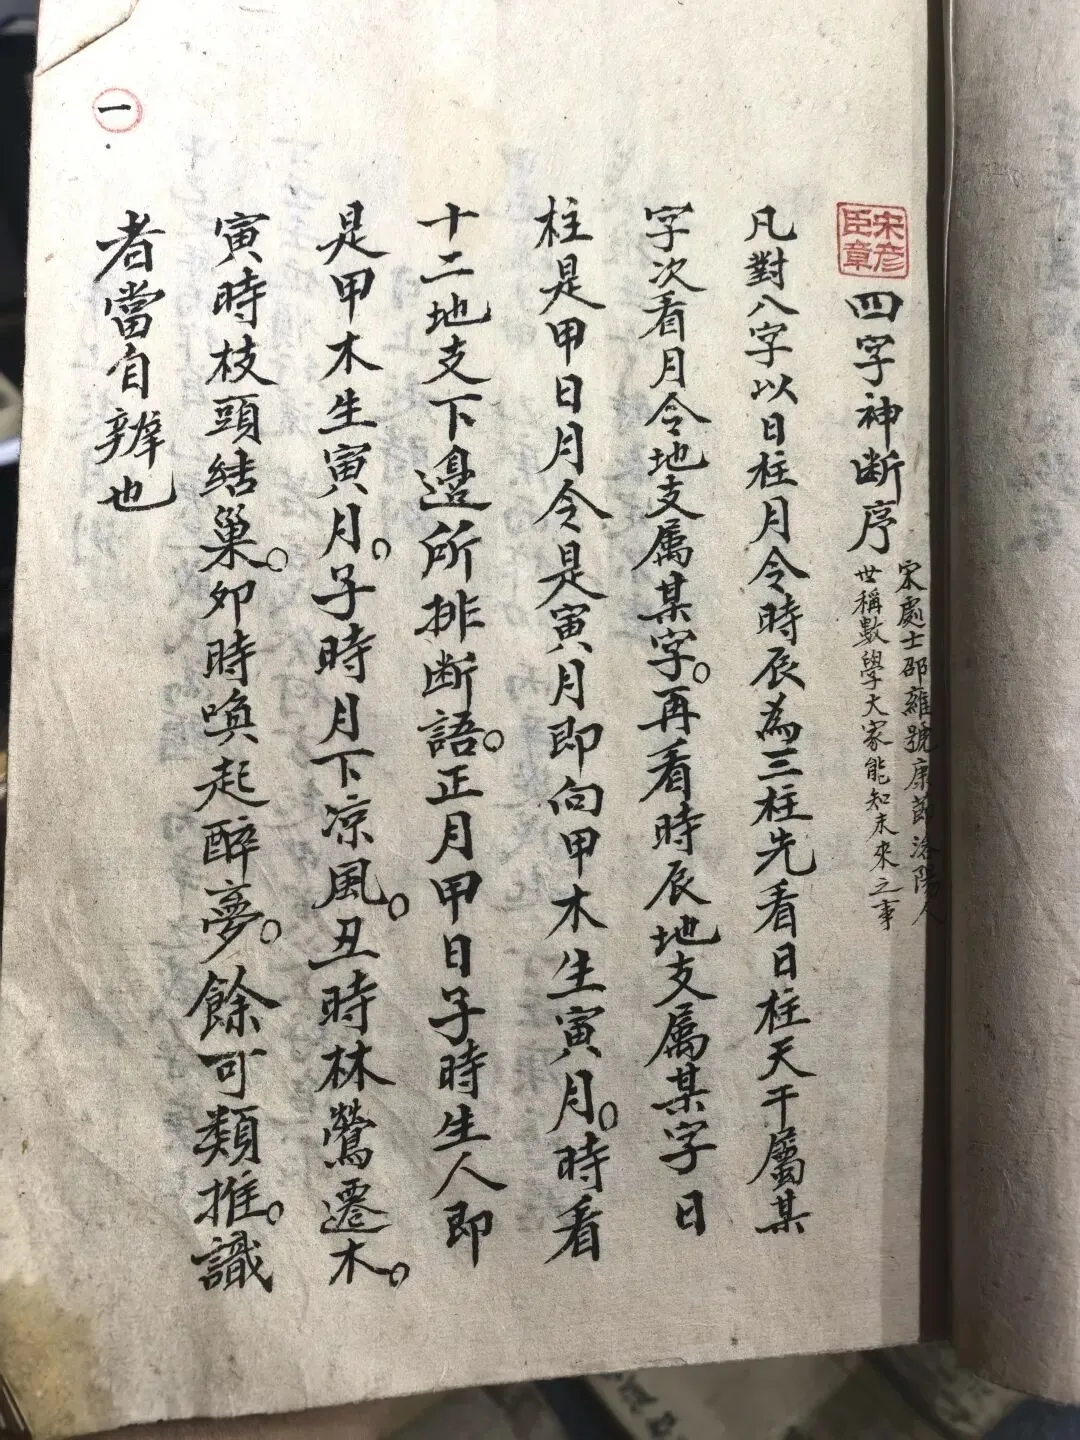 宋彦臣章
四字神断序
宋處士邵雍號康節洛陽人
世稱數學大家能知未來之事
凡對八字以日柱月令時辰為三柱先看日柱天干屬某
字次看月令地支属某字。再看時辰地支属某字日
柱是甲日月令是寅月即向甲木生寅月。時看
十二地支下邊所排断語。正月甲日子時生人即
是甲木生寅月。子時月下凉風。丑時林鶯遷木。
寅時枝頭结巢。卯時喚起醉夢。餘可類推。識
者當自辨也
一